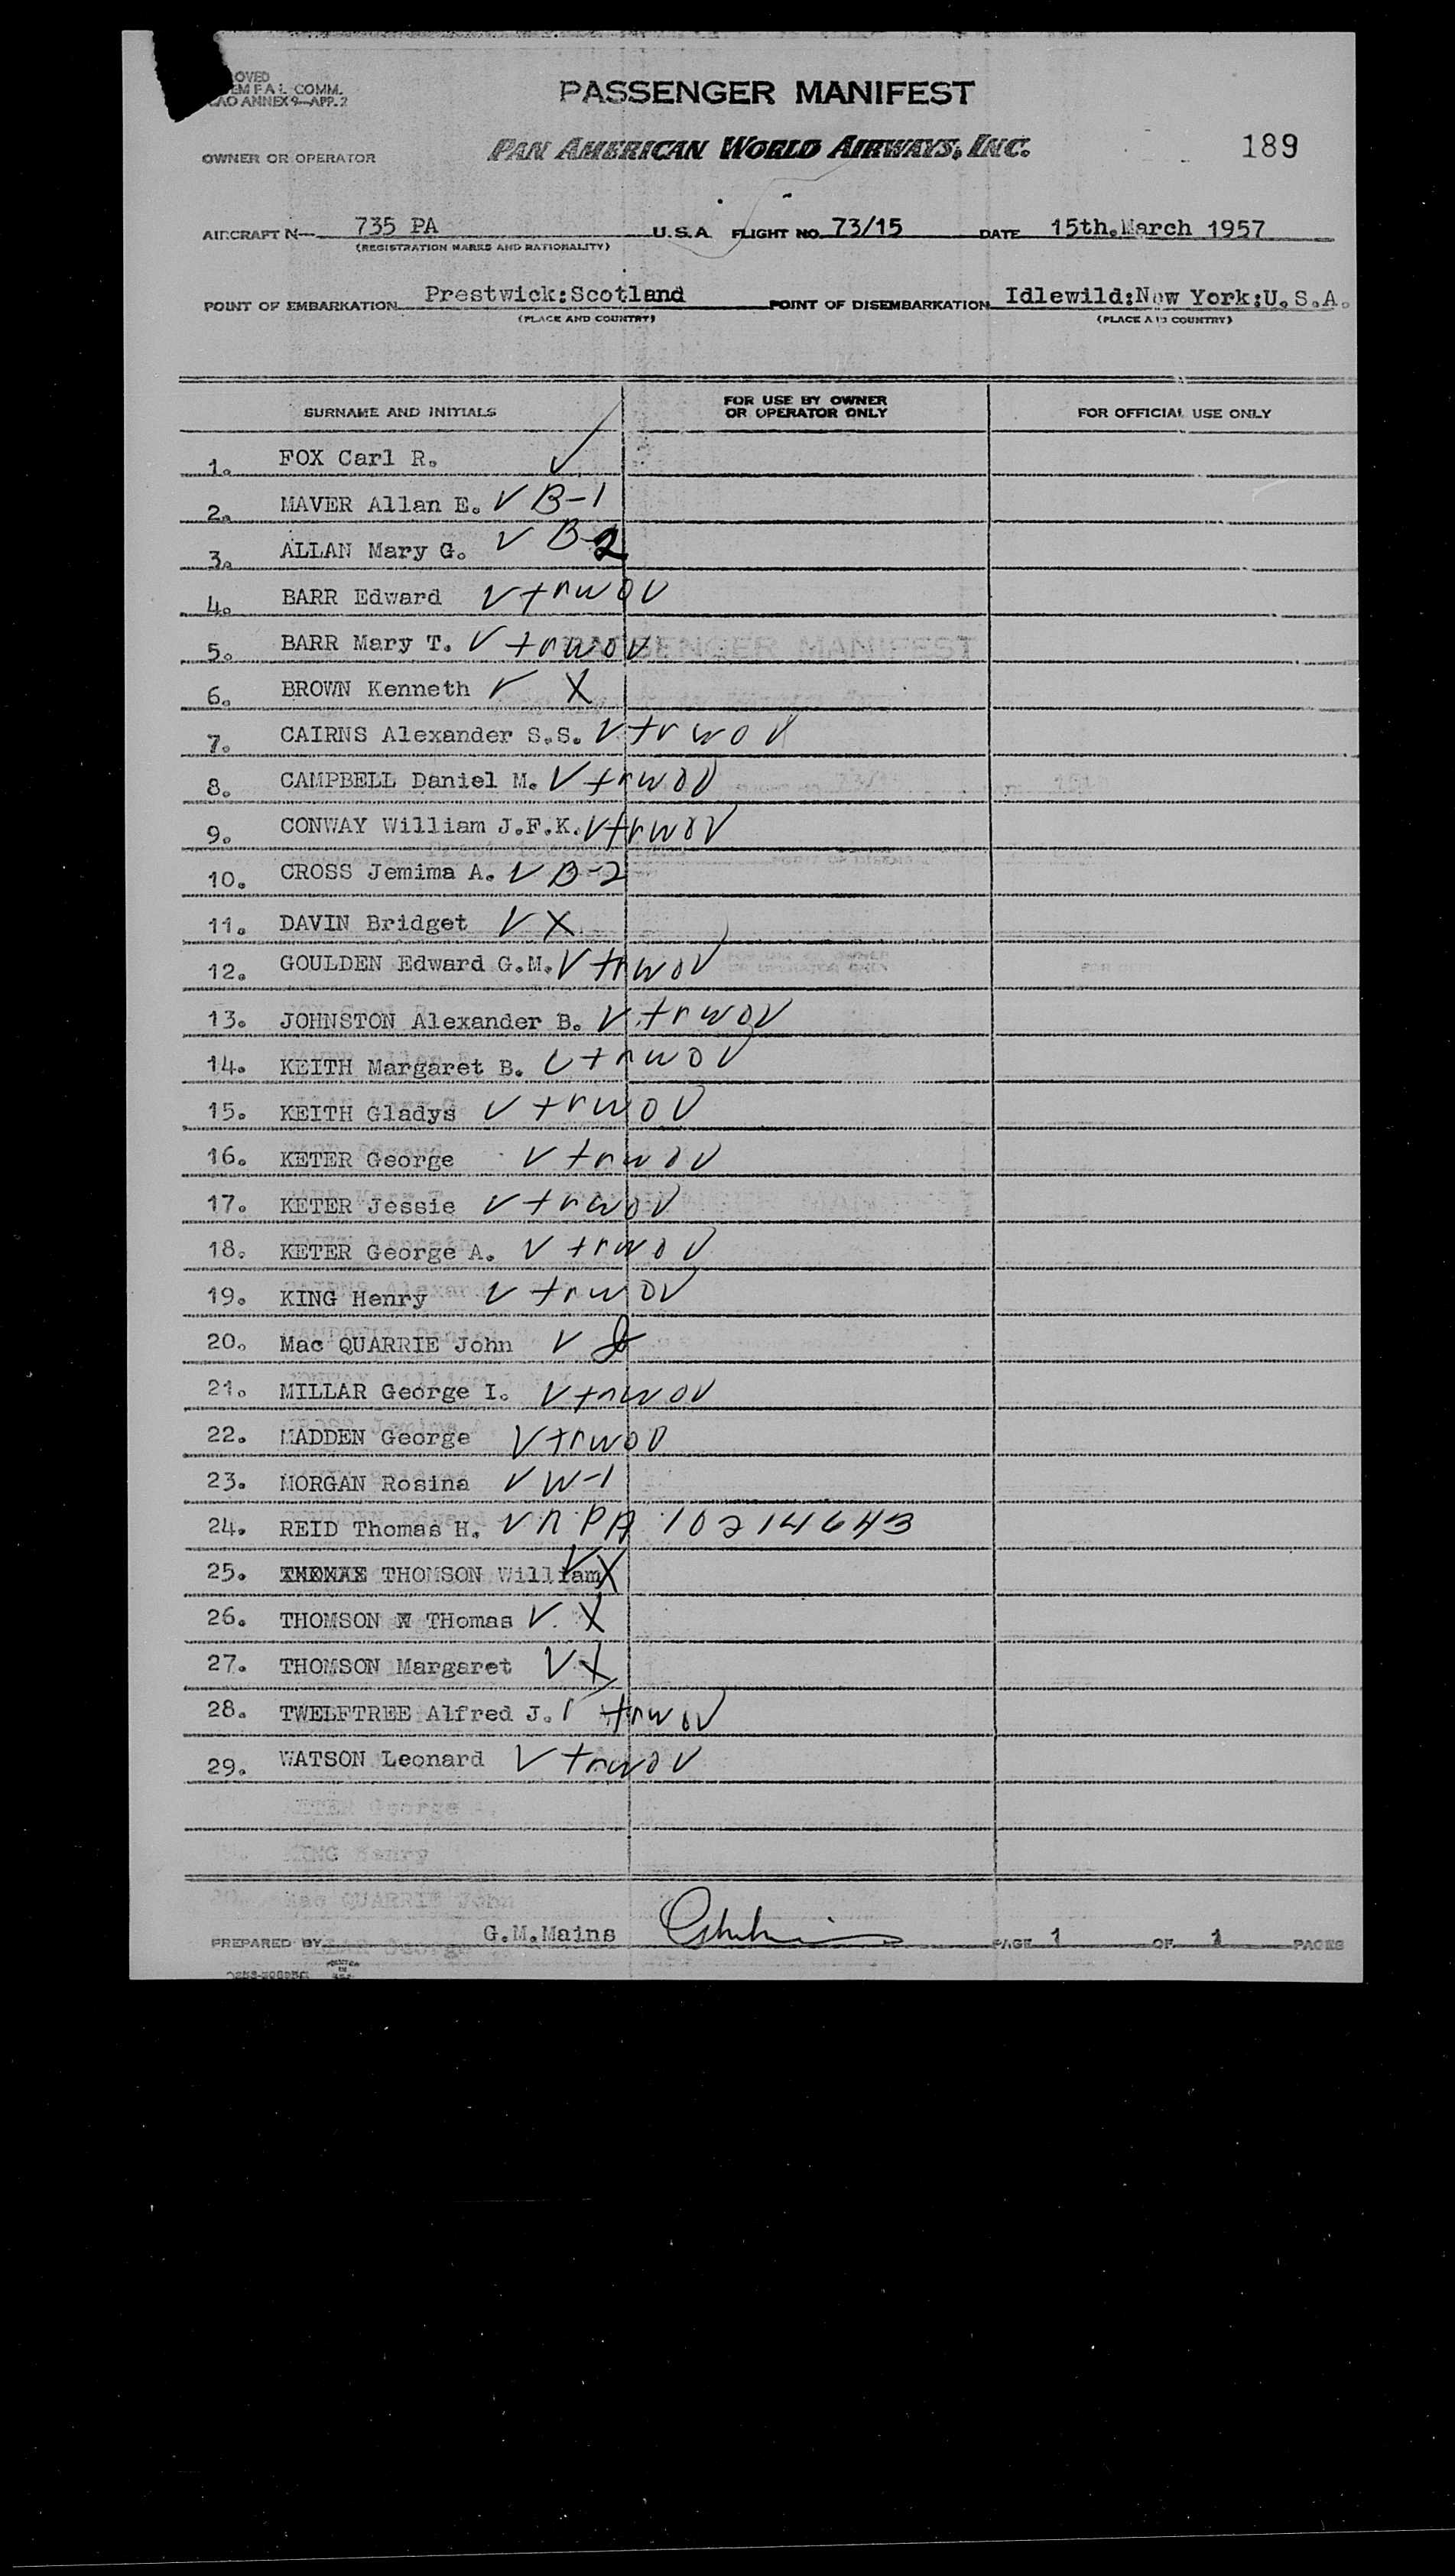 OVED
EM F A L COMM.
CAO ANNEX 9—APP. 2
PASSENGER MANIFEST
OWNER OR OPERATOR PAN AMERICAN WORLD AIRWAYS, INC. 189
AIRCRAFT N— 735 PA U.S.A. FLIGHT NO. 73/15 DATE 15th.March 1957
(REGISTRATION MARKS AND NATIONALITY)
POINT OF EMBARKATION Prestwick:Scotland POINT OF DISEMBARKATION Idlewild:New York:U.S.A.
(PLACE AND COUNTRY) (PLACE AND COUNTRY)
SURNAME AND INITIALS FOR USE BY OWNER OR OPERATOR ONLY FOR OFFICIAL USE ONLY
1. FOX Carl R. ✓
2. MAVER Allan E. ✓ B-1
3. ALLAN Mary G. ✓ B-2
4. BARR Edward ✓ trwov
5. BARR Mary T. ✓ trwov
6. BROWN Kenneth ✓ X
7. CAIRNS Alexander S.S. ✓ trwov
8. CAMPBELL Daniel M. ✓ trwov
9. CONWAY William J.F.K. ✓ trwov
10. CROSS Jemima A. ✓ B-2
11. DAVIN Bridget ✓ X
12. GOULDEN Edward G.M. ✓ trwov
13. JOHNSTON Alexander B. ✓ trwov
14. KEITH Margaret B. ✓ trwov
15. KEITH Gladys ✓ trwov
16. KETER George ✓ trwov
17. KETER Jessie ✓ trwov
18. KETER George A. ✓ trwov
19. KING Henry ✓ trwov
20. Mac QUARRIE John ✓
21. MILLAR George I. ✓ trwov
22. MADDEN George ✓ trwov
23. MORGAN Rosina ✓ W-1
24. REID Thomas H. ✓ RPA 10214643
25. THOMSON William ✓ X
26. THOMSON THomas ✓ X
27. THOMSON Margaret ✓ X
28. TWELFTREE Alfred J. ✓ trwov
29. WATSON Leonard ✓ trwov
PREPARED BY G.M.Mains PAGE 1 OF 1 PAGES